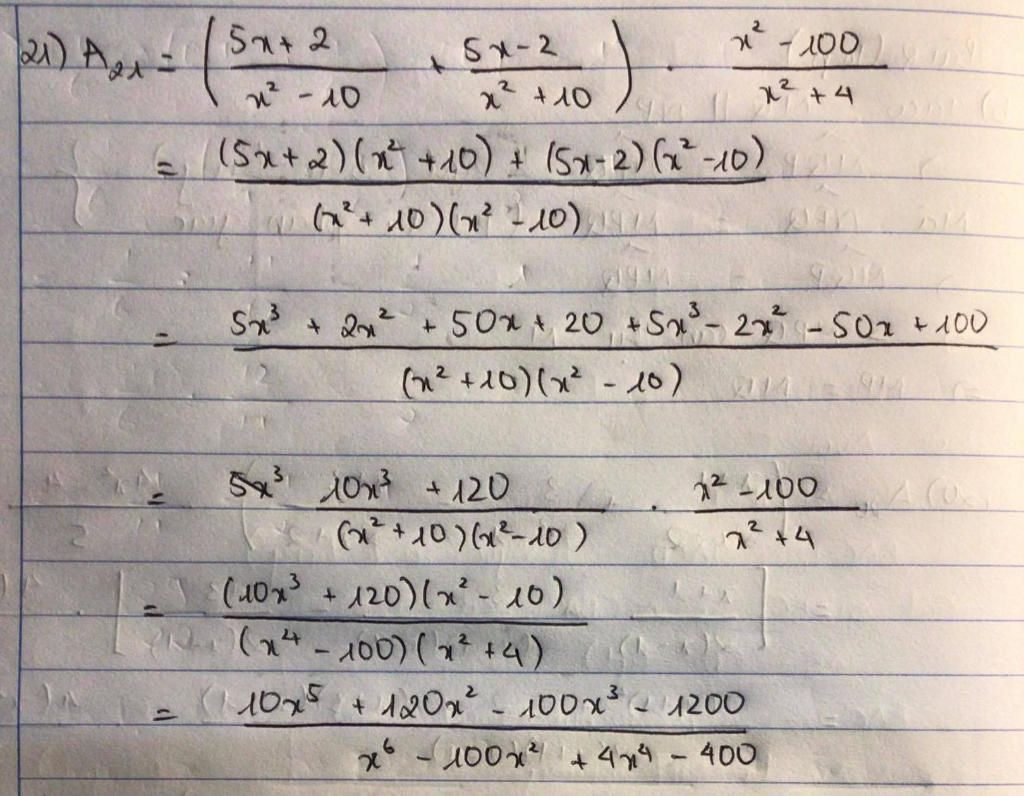 21) A₂₁ = ( (5x + 2)/(x² - 10) + (5x - 2)/(x² + 10) ) . (x² - 100)/(x² + 4)
= ((5x + 2)(x² + 10) + (5x - 2)(x² - 10))/((x² + 10)(x² - 10))
= (5x³ + 2x² + 50x + 20 + 5x³ - 2x² - 50x + 100)/((x² + 10)(x² - 10))
= 5x³ (10x³ + 120)/((x² + 10)(x² - 10)) . (x² - 100)/(x² + 4)
= ((10x³ + 120)(x² - 10))/((x⁴ - 100)(x² + 4))
= (10x⁵ + 120x² - 100x³ - 1200)/(x⁶ - 100x² + 4x⁴ - 400)